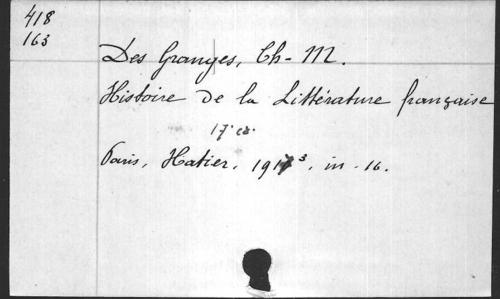 418
163
Des Granges, Ch-M.
Histoire de la Littérature française
17e ed.
Paris, Hatier, 1913, in-16.